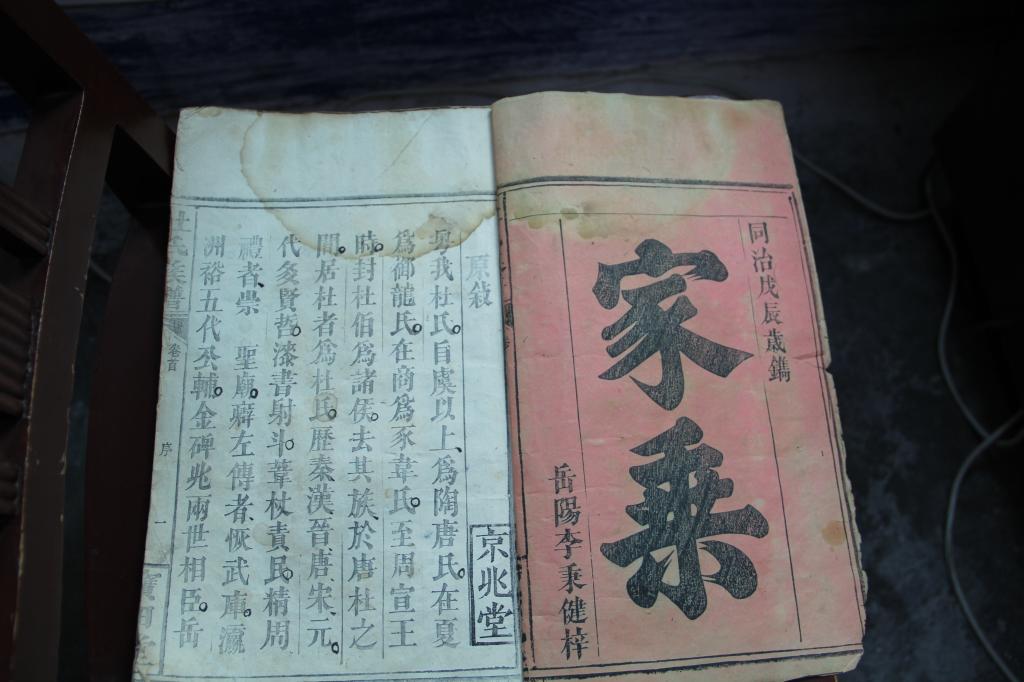 同治戊辰歲鐫
家乘
岳陽李秉健梓
原敘
京兆堂
我杜氏自虞以上為陶唐氏在夏
為御龍氏在商為豕韋氏至周宣王
時封杜伯為諸侯去其族於唐杜之
間居杜者為杜氏歷秦漢晉唐宋元
代多賢哲漆書射斗葦杖責民精周
禮者崇 聖廟癖左傳者恢武庫瀛
洲裕五代公輔金碑兆兩世相臣岳
杜氏族譜 卷首 序 一